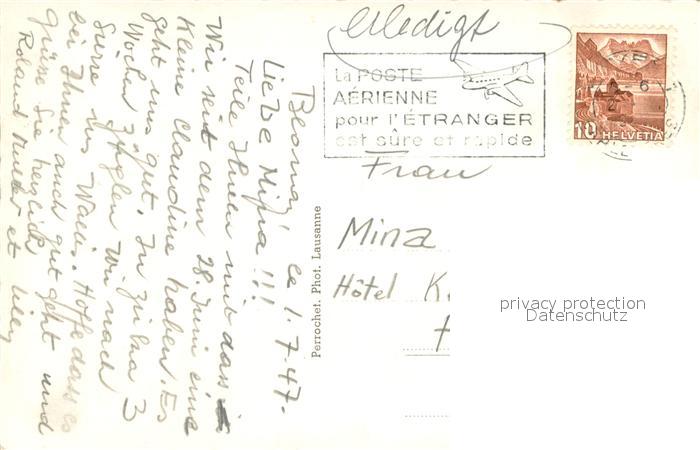 Erledigt
La POSTE
AÉRIENNE
pour l'ÉTRANGER
est sûre et rapide
10 HELVETIA
Frau
Mina
Hôtel K.
privacy protection
Datenschutz
Perrochet. Phot. Lausanne
le 1.7.47.
Liebe Mina!!!
Teile Ihnen mit dass
Wir seit dem 28. Juni eine
Kleine Claudine haben. Es
geht uns gut. In zirka 3
Wochen Wir nach
ins Wallis. Hoffe dass es
bei Ihnen auch gut geht und
grüsse Sie herzlich
Roland et Lilly